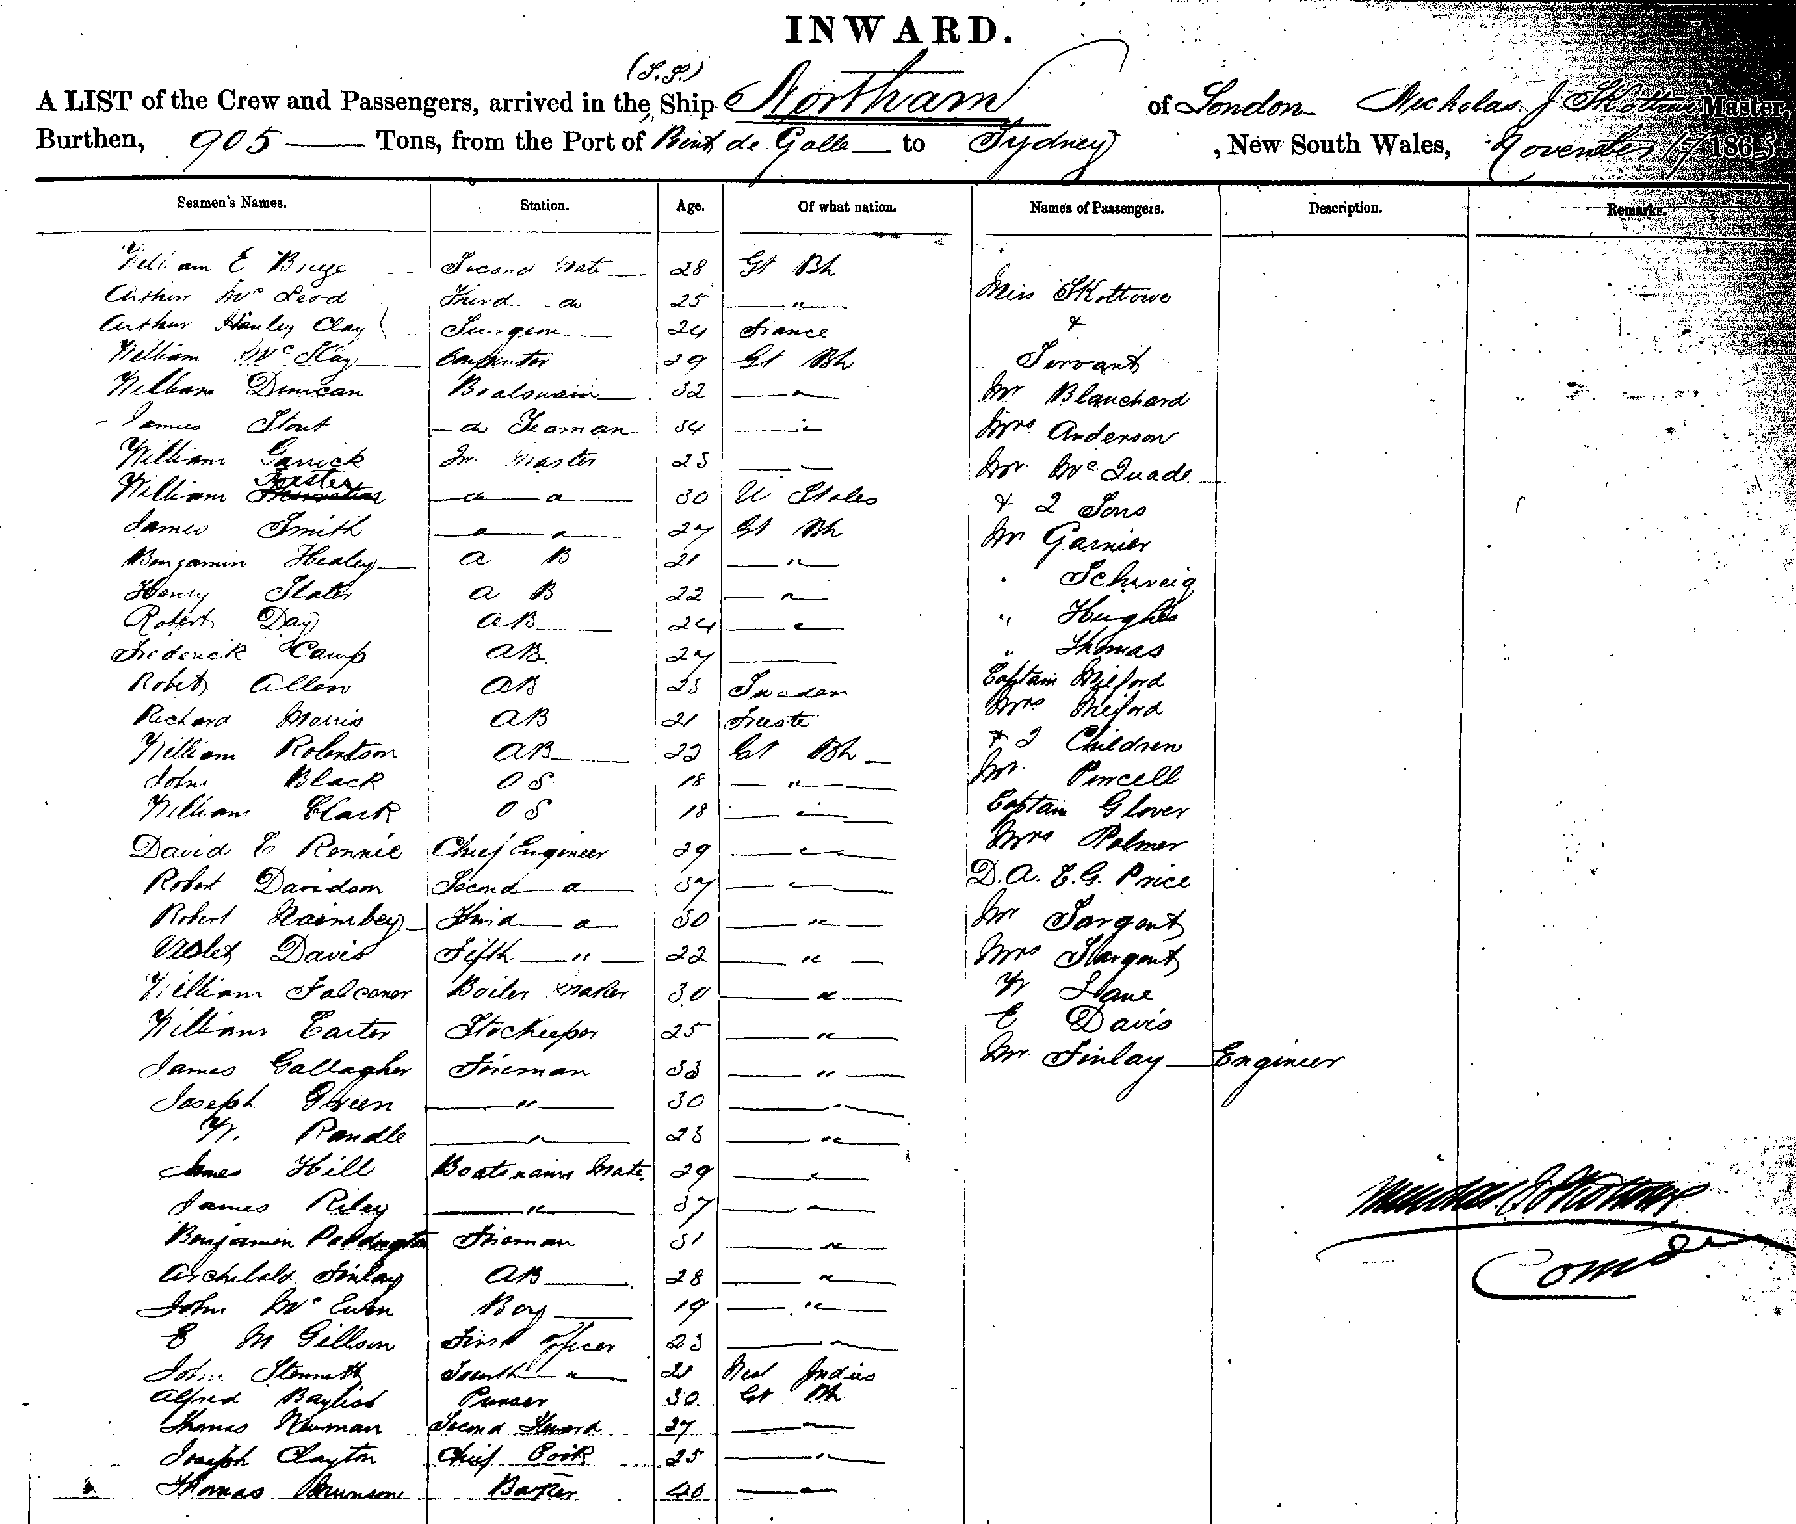 INWARD.
(S.S.)
A LIST of the Crew and Passengers, arrived in the Ship Northam of London Nicholas J Skottowe Master,
Burthen, 905 Tons, from the Port of Point de Galle to Sydney, New South Wales, November 1865
Seamen's Names. Station. Age. Of what nation. Names of Passengers. Description. Remarks.
William E Second Mate 28 Gt Bn
Arthur McLeod Third do 25 " Miss Skottowe
Arthur Hanley Clay Surgeon 24 France &
William McKay Carpenter 29 Gt Bn Servant
William Duncan Boatswain 32 " Mr Blanchard
James Stout do Seaman 34 " Mrs Anderson
William Garrick Qr Master 23 Mr McQuade
William Forster do do 30 U States & 2 Sons
James Smith do do 27 Gt Bn Mr Garnier
Benjamin Healey A B 21 " " Schweig
Henry Slater A B 22 " " Hughes
Robert Day AB 24 " " Thomas
Frederick Camp AB 27 Captain Milford
Robert Allen AB 23 Sweden Mrs Milford
Richard Morris AB 21 Trieste & 2 Children
William Robertson AB 22 Gt Bn Mr Purcell
John Black O S 18 " Captain Glover
William Clark O S 18 " Mrs Palmer
David E Rennie Chief Engineer 29 " D.A.C.G. Price
Robert Davidson Second do 37 " Mr Sargent
Robert Third do 30 " Mrs Sargent
Violet Davis Fifth " 22 " W Lane
William Falconer Boiler Maker 30 " E Davis
William Carter Storekeeper 25 " Mr Finlay Engineer
James Gallagher Fireman 33 "
Joseph Green " 30 "
W. Randle " 23 "
James Hill Boatswains Mate 29 "
James Riley " 37 "
Benjamin Poddington Fireman 31 "
Archibald Finlay AB 28 "
John McEwen Boy 19 "
E M Gillson First Officer 23 "
John Stennett Fourth " 21 West Indies
Alfred Bayliss Purser 30 Gt Bn
Thomas Newman Second Steward 27 "
Joseph Clayton Chief Cook 25 "
Thomas Brunson Baker 40 "
Nicholas J Skottowe
Comdr